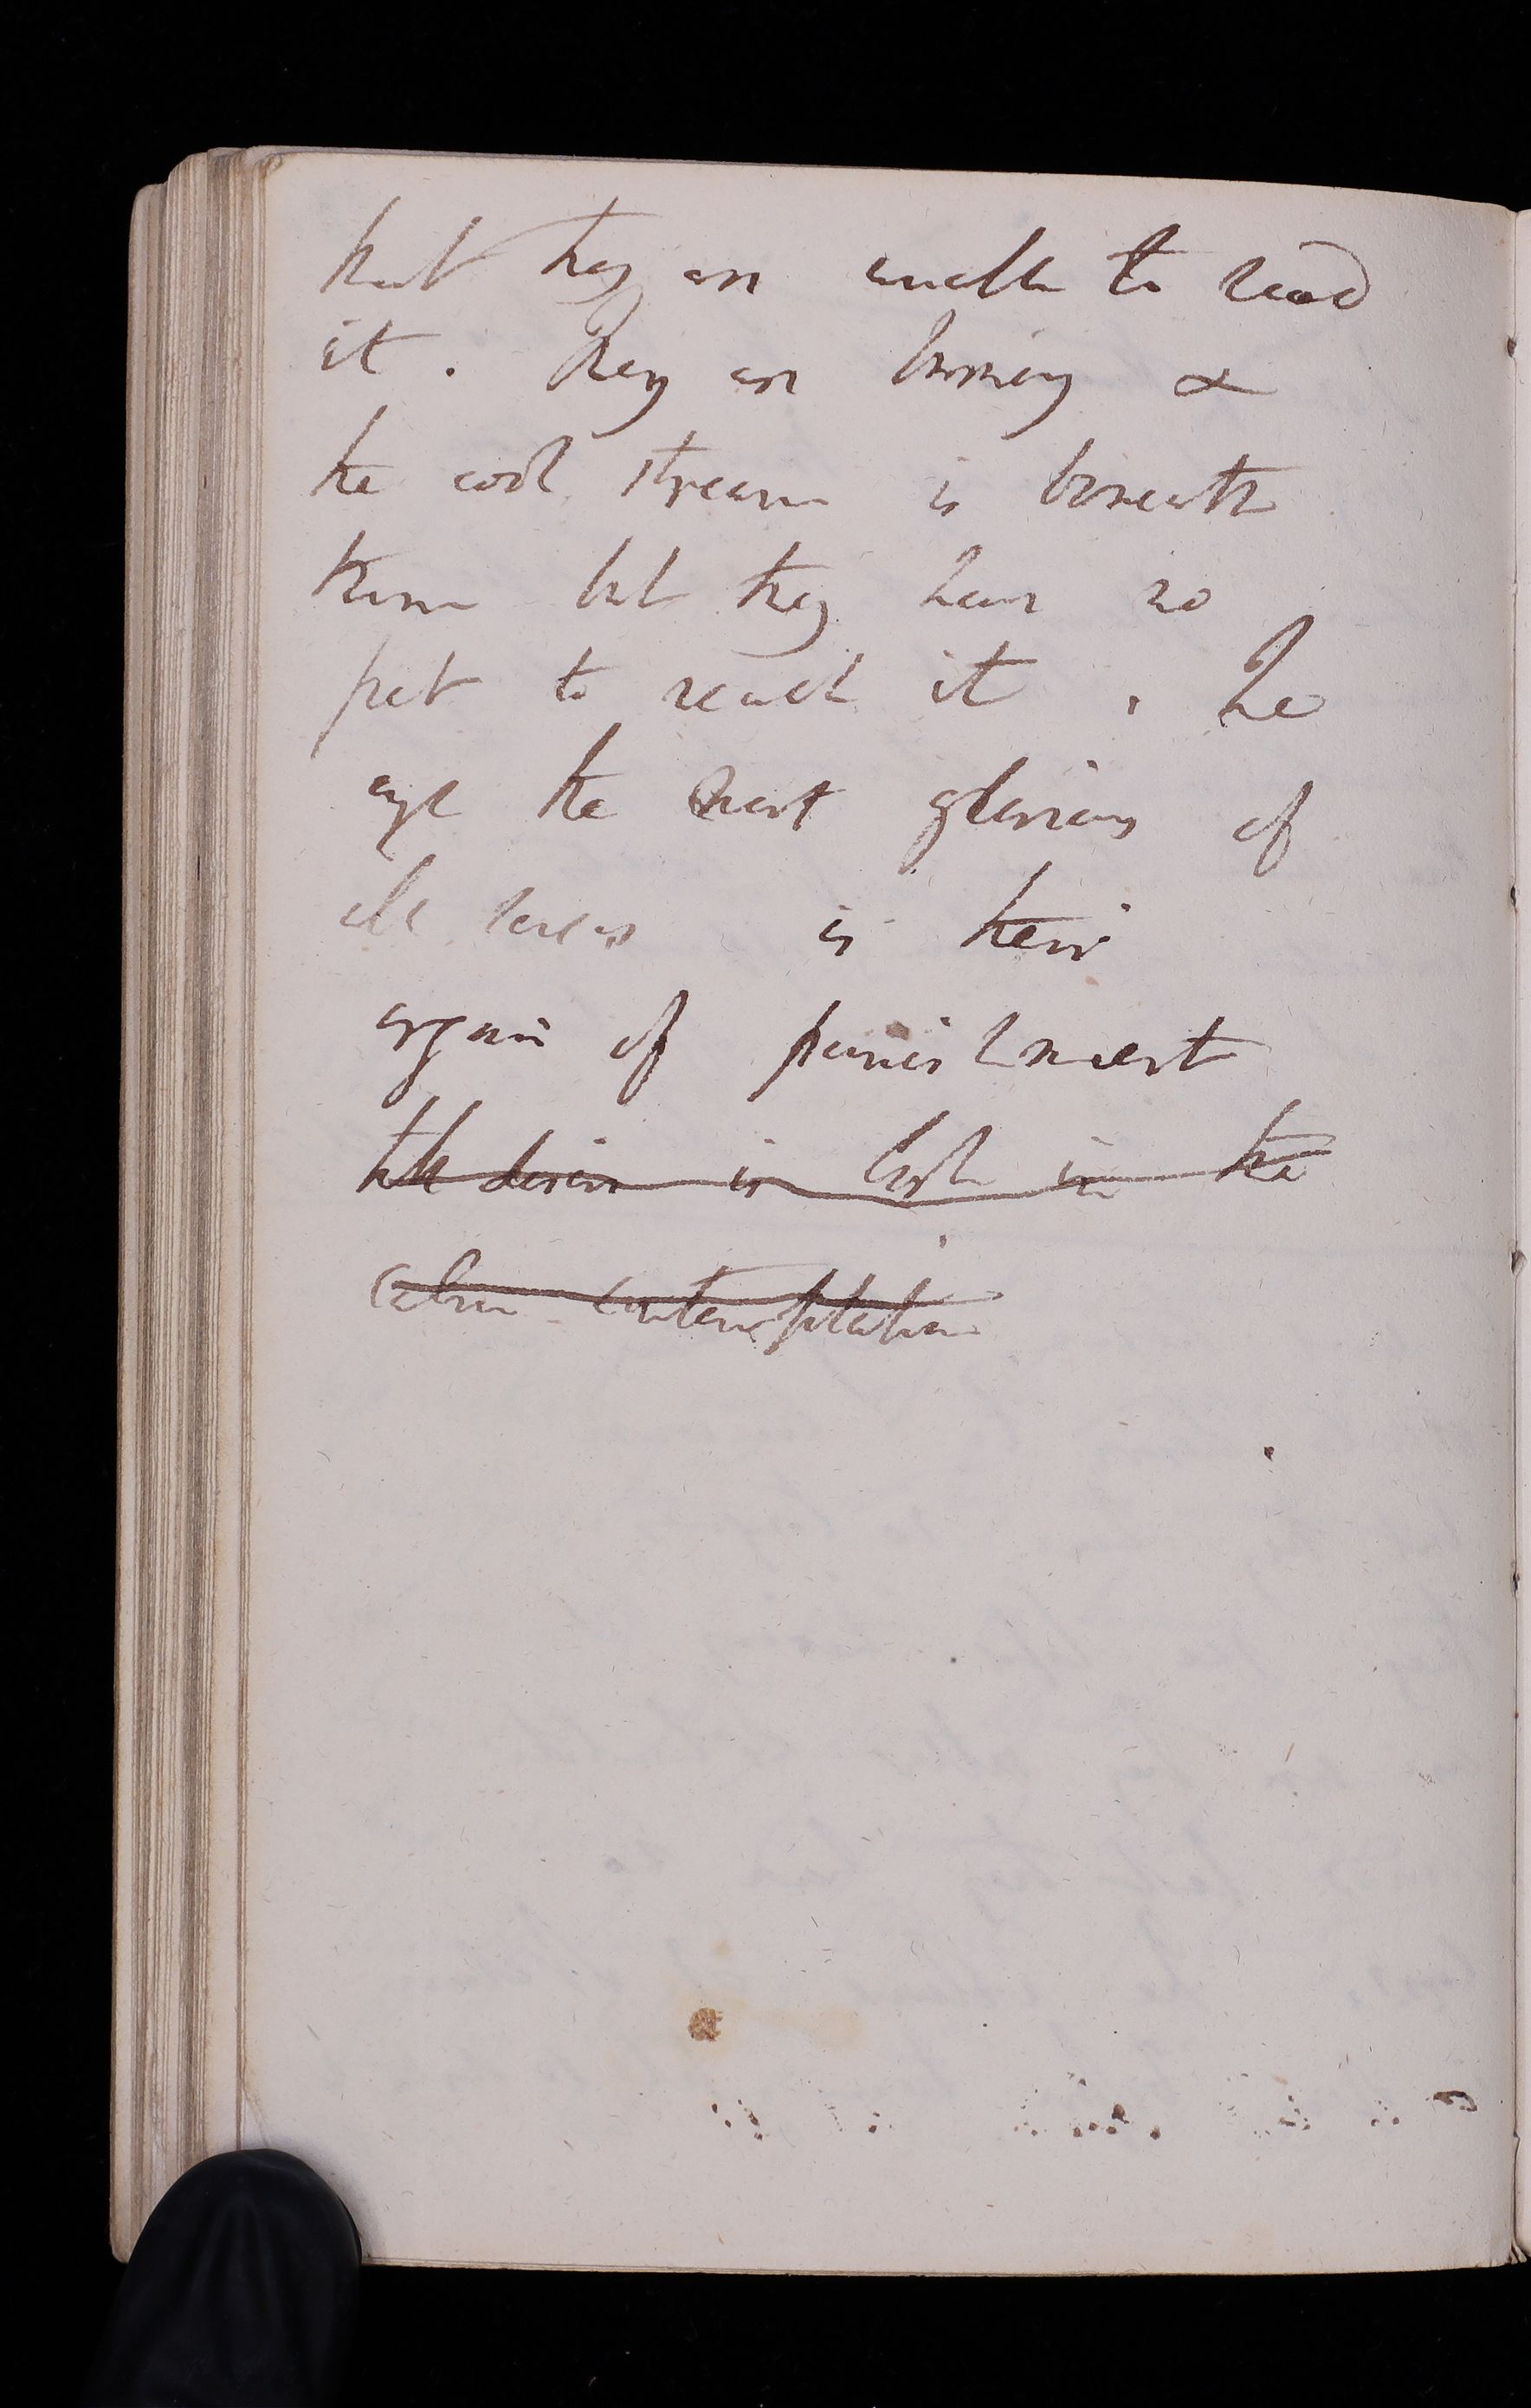 but they are unable to read
it. They are burning &
the cool stream is beneath
them but they have no
feet to reach it. The
eye the most glorious of
all senses is their
organ of punishment
the desire is lost in the
calm contemplation